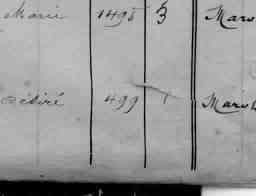 Marie 1495 3 Mars
Désiré 499 1 Mars